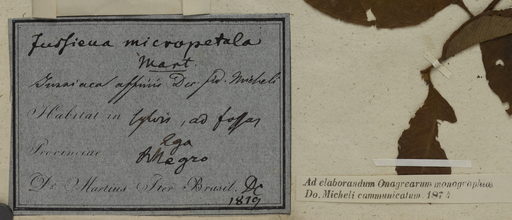 Jussieua micropetala
Mart.
Jussiaea affinis Dec. fid. Micheli
Habitat in sylvis, ad fossas
Ega
Provinciae RNegro
Dr. Martius Iter Brasil. Dc
1819
Ad elaborandum Onagrearum monographiae
Do. Micheli cammunicatum. 1874